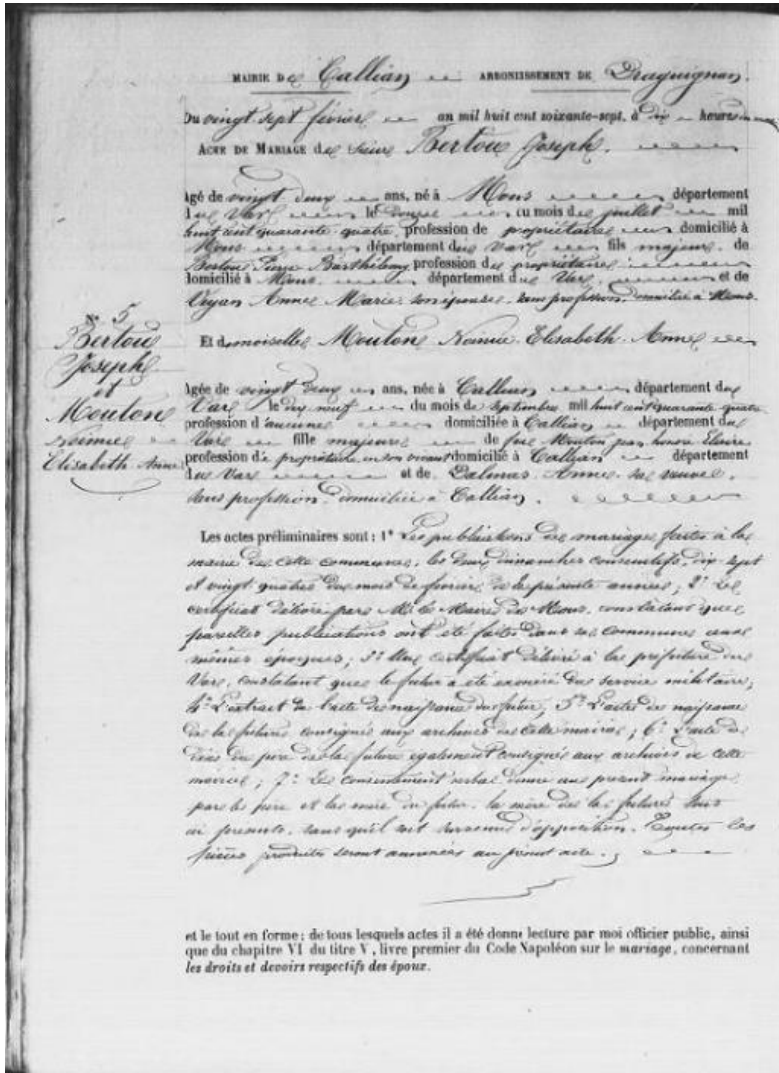 MAIRIE De Callian ARRONDISSEMENT DE Draguignan.
Du vingt sept février an mil huit cent soixante-sept, à dix heures du
ACTE DE MARIAGE de sieur Bertou Joseph.
Agé de vingt deux ans, né à Mons département
du Var le douze du mois de juillet mil
huit cent quarante quatre, profession de propriétaire domicilié à
Mons département du Var fils majeur de
Bertou Pierre Barthélemy profession de propriétaire
domicilié à Mons département du Var et de
Anne Marie son épouse, sans profession, domiciliée à Mons.
N° 5
Bertou
Joseph
et
Mouton
Noimie
Elisabeth Anne
Et demoiselle Mouton Noimie Elisabeth Anne
Agée de vingt deux ans, née à Callian département du
Var le dix neuf du mois de septembre mil huit cent quarante quatre
profession d'aucune domiciliée à Callian département du
Var fille majeure de feu Mouton jean honoré
profession de propriétaire en son vivant domicilié à Callian département
du Var et de Dalmas Anne sa veuve,
sans profession domiciliée à Callian.
Les actes préliminaires sont : 1° Les publications de mariage faites à la
mairie de cette commune, les deux dimanches consécutifs, dix-sept
et vingt quatre du mois de février de la présente année ; 2° Le
certificat délivré par Mr le Maire de Mons, constatant que
pareilles publications ont été faites dans sa commune aux
mêmes époques ; 3° Un certificat délivré à la préfecture du
Var, constatant que le futur a été exonéré du service militaire ;
4° L'extrait de l'acte de naissance du futur ; 5° L'acte de naissance
de la future consigné aux archives de cette mairie ; 6° L'acte de
décès du père de la future également consigné aux archives de cette
mairie ; 7° Le consentement verbal donné au présent mariage
par le père et la mère du futur, la mère de la future tous
ici présents, sans qu'il soit survenu d'opposition. Toutes les
pièces produites seront annexées au présent acte.
et le tout en forme ; de tous lesquels actes il a été donné lecture par moi officier public, ainsi
que du chapitre VI du titre V, livre premier du Code Napoléon sur le mariage, concernant
les droits et devoirs respectifs des époux.